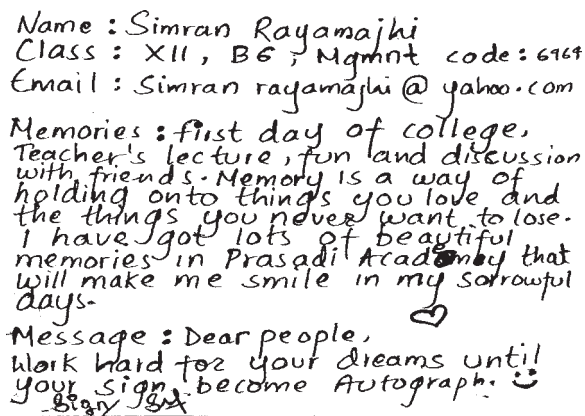 Name : Simran Rayamajhi
Class : XII, B6, Mgmnt code : 6964
Email : Simran rayamajhi @ yahoo.com
Memories : first day of college,
Teacher's lecture, fun and discussion
with friends. Memory is a way of
holding onto things you love and
the things you never want to lose.
I have got lots of beautiful
memories in Prasadi Academy that
will make me smile in my sorrowful
days.
Message : Dear people,
Work hard for your dreams until
your sign become Autograph.